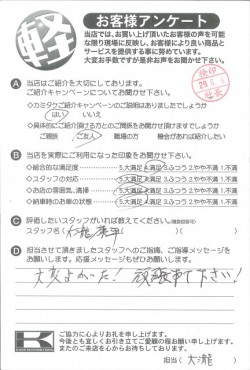 軽
お客様アンケート
当店では、お買い上げ頂いたお客様の声を可能
な限り現場に反映し、お客様により良い商品と
サービスを提供する事に努めています。
大変お手数ですが是非お声をお聞かせ下さい。
A 当店はご紹介を大切にしております。
ご紹介キャンペーンについてお聞かせ下さい。
◇カミタクご紹介キャンペーンのご説明はありましたでしょうか
はい いいえ
◇具体的にご紹介頂ける方とのご関係をお聞かせ頂けますでしょうか
ご親族 ご友人 職場の方 機会があれば紹介したい
B 当店を実際にご利用になった印象をお聞かせ下さい。
◇総合的な満足度 5.大満足 4.満足 3.ふつう 2.やや不満 1.不満
◇スタッフの対応 5.大満足 4.満足 3.ふつう 2.やや不満 1.不満
◇お店の雰囲気、清掃 5.大満足 4.満足 3.ふつう 2.やや不満 1.不満
◇納車時のお車の状態 5.大満足 4.満足 3.ふつう 2.やや不満 1.不満
C 評価したいスタッフがいれば教えてください。
スタッフ名( )( )
D 担当させて頂きましたスタッフへのご指摘、ご指導メッセージを
お願い致します。応援メッセージもぜひお願い致します。
大変よかった! 頑張って下さい!
K
ご協力に心よりお礼を申し上げます。
今後とも宜しくお引き立てご愛顧の程お願い申し上げます。
またのご来店を心からお待ちしております。
担当( 大瀧 )